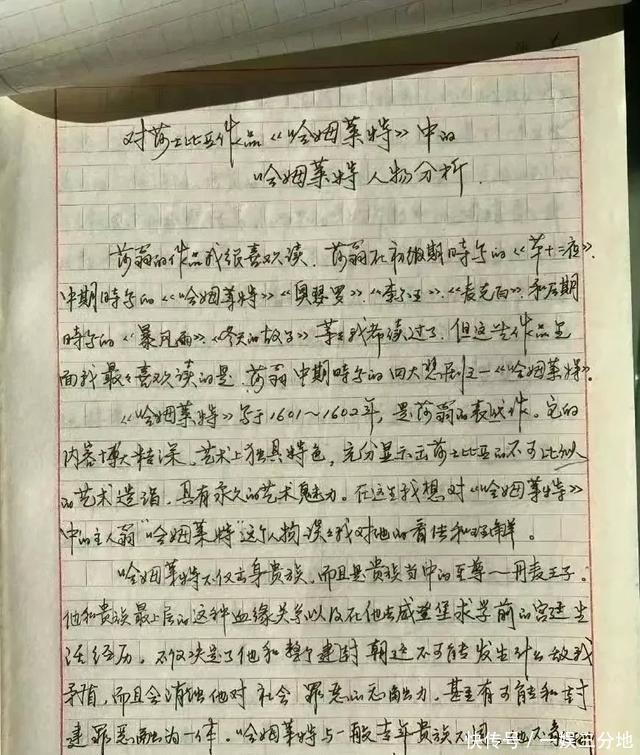 对莎士比亚作品《哈姆莱特》中的
哈姆莱特人物分析.
莎翁的作品我很喜欢读.莎翁在初级期时写的《第十二夜》.
中期时写的《哈姆莱特》《奥瑟罗》.《李尔王》.《麦克白》.和后期
时写的《暴风雨》、《冬天的故事》等等我都读过了.但这些作品里
面我最最喜欢读的是.莎翁中期时写的四大悲剧之一《哈姆莱特》.
《哈姆莱特》写于1601~1602年,是莎翁的代表作。它的
内容博大精深.艺术上独具特色,充分显示出莎士比亚的不可比拟
的艺术造诣.具有永久的艺术魅力.在这里我想对《哈姆莱特》
中的主人翁"哈姆莱特"这个人物谈谈我对他的看法和理解。
哈姆莱特不仅出身贵族.而且是贵族当中的至尊——丹麦王子.
他和贵族最上层的这种血缘关系以及在他去威登堡求学前的宫廷生
活经历.不仅决定了他和整个建封朝廷不可能发生什么敌我
矛盾,而且会消蚀他对社会罪恶的 力.甚至有可能和封
建罪恶融为一体.哈姆莱特与一般青年贵族不同.他不
快传号/一娱三分地